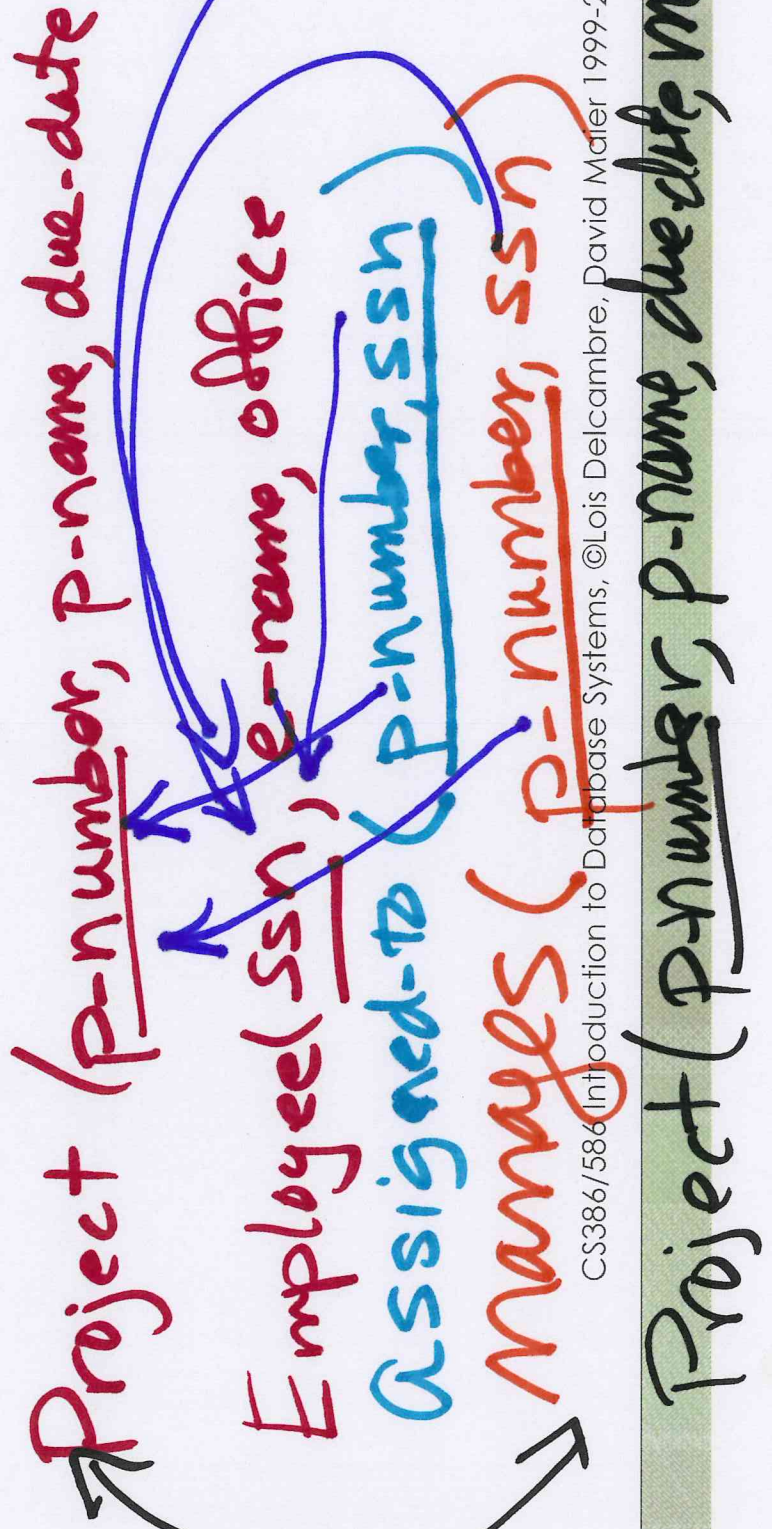 Project (p-number, p-name, due-date
Employee(ssn, e-name, office
assigned-to (p-number, ssn)
manages (p-number, ssn)
CS386/586 Introduction to Database Systems, ©Lois Delcambre, David Maier 1999-2
Project (p-number, p-name, due-date, m